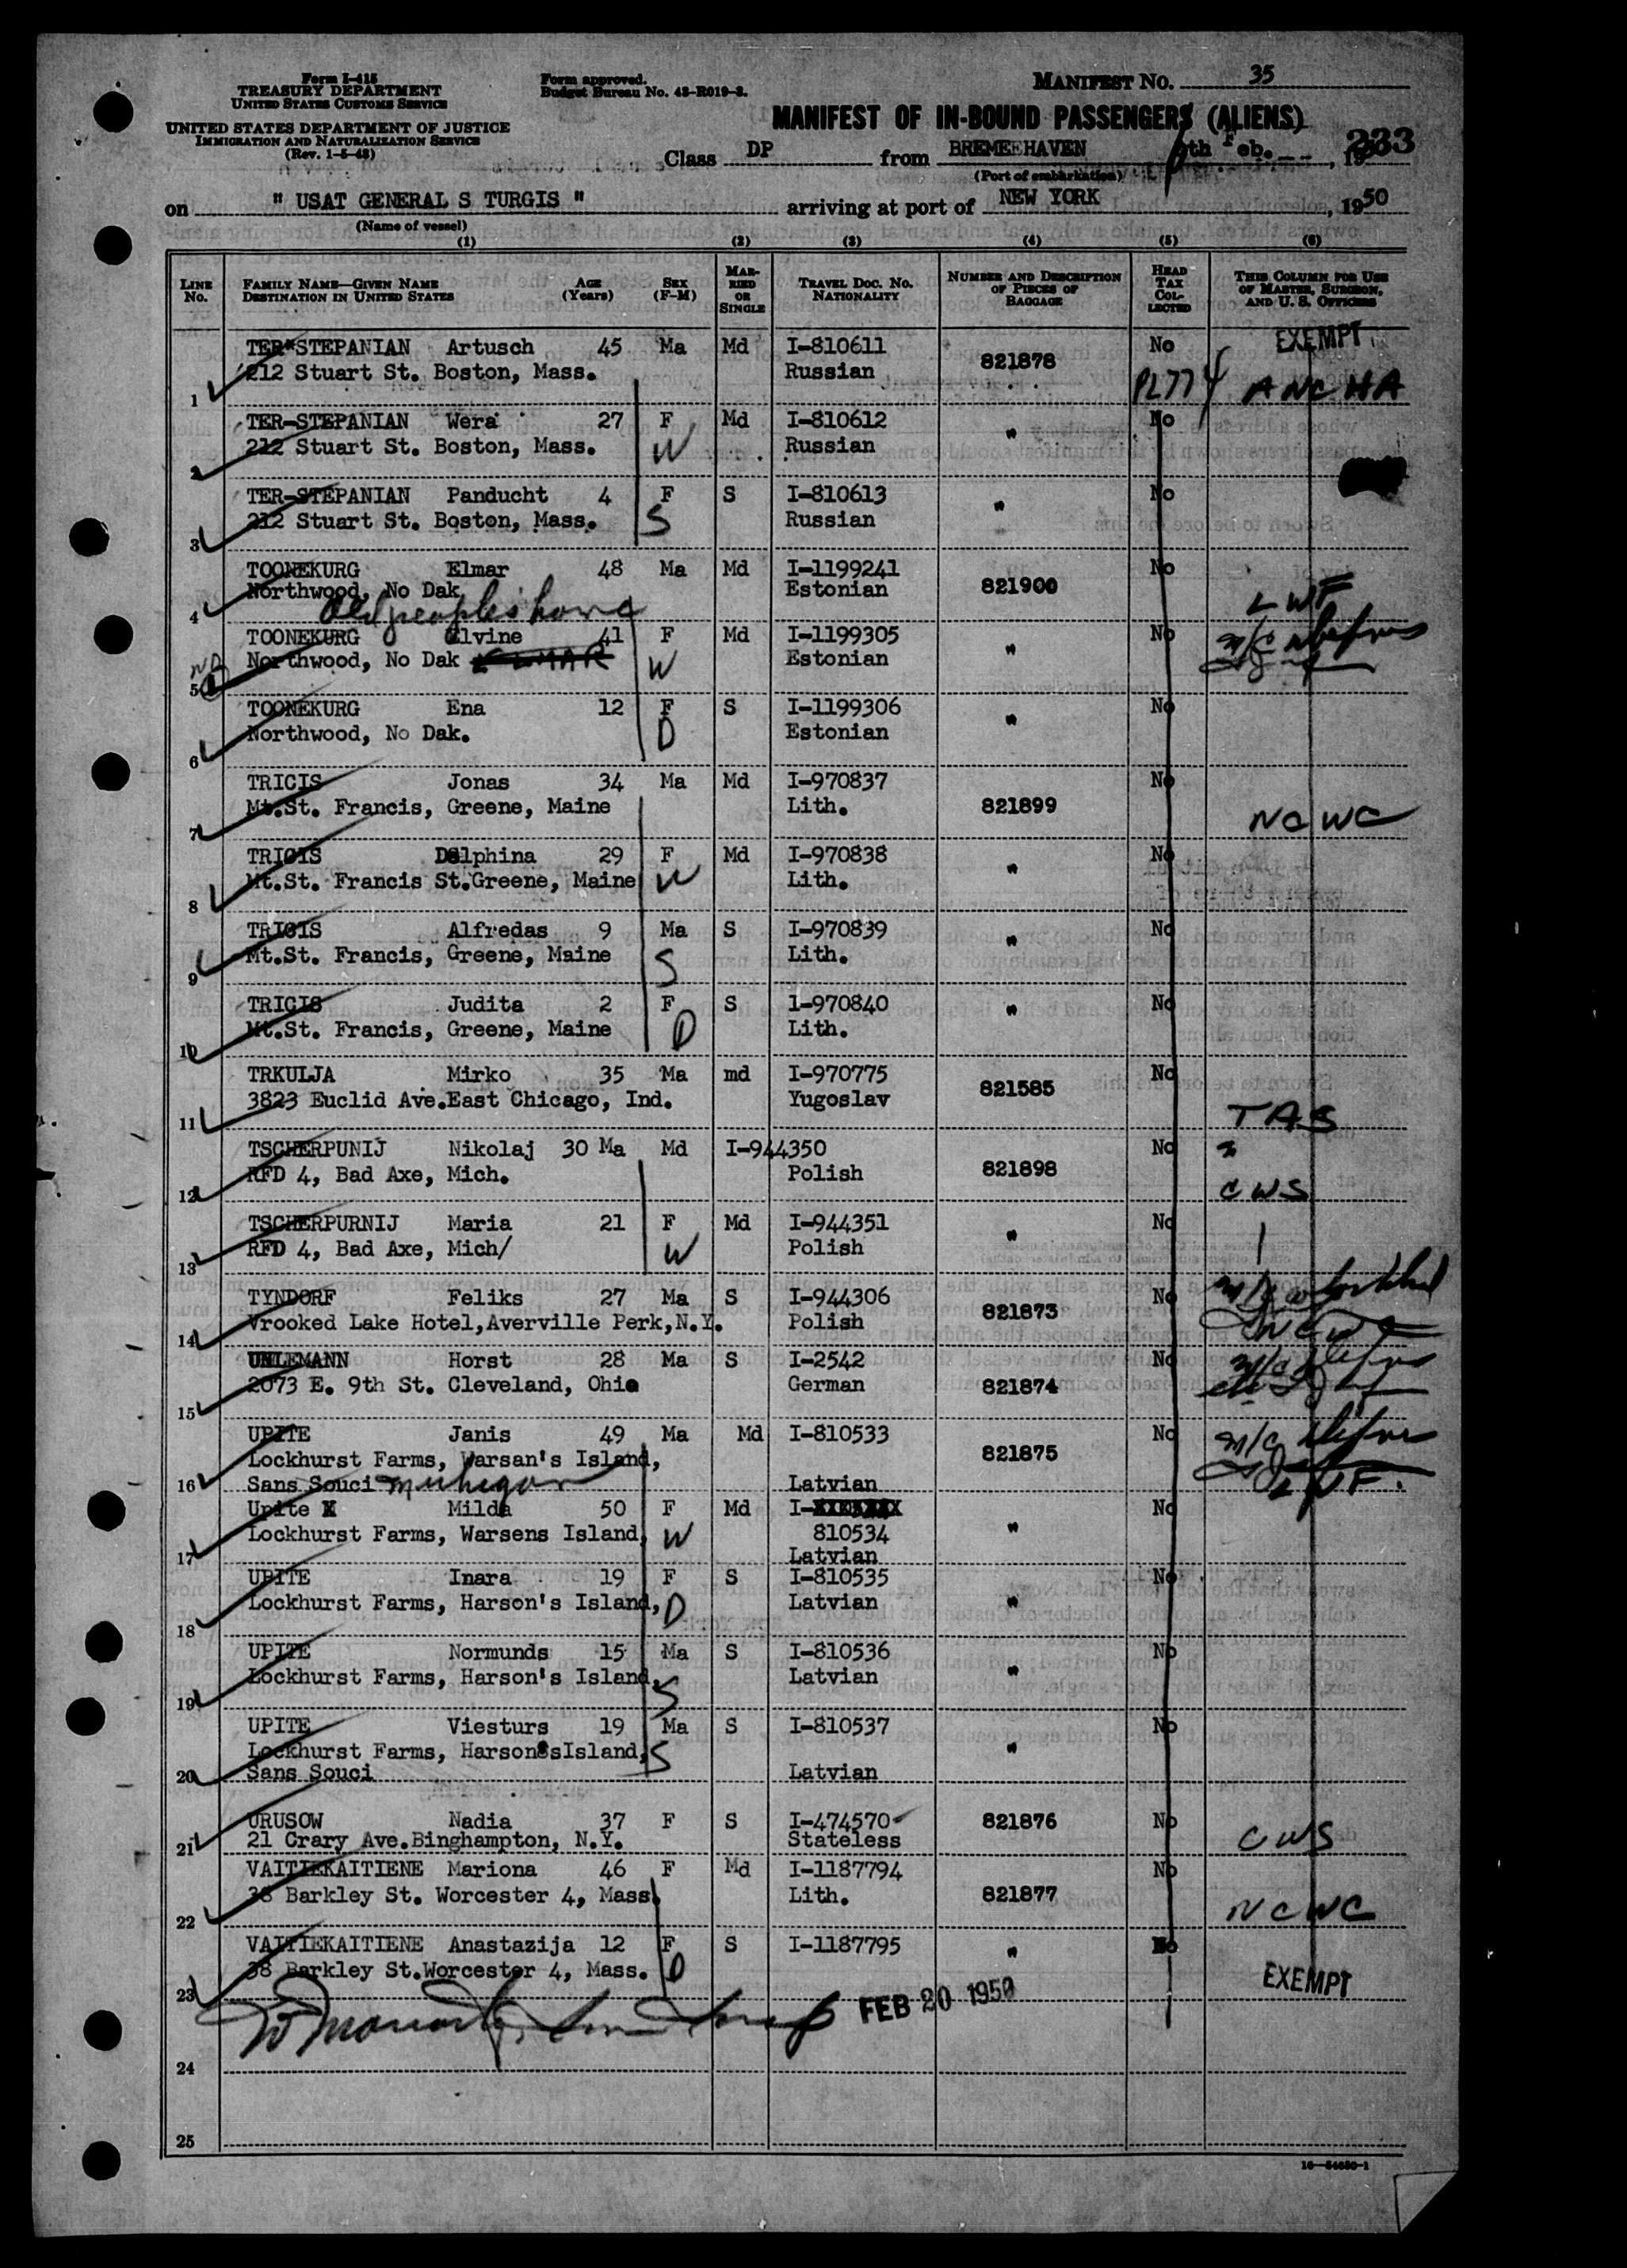 Form I-415
TREASURY DEPARTMENT
UNITED STATES CUSTOMS SERVICE
UNITED STATES DEPARTMENT OF JUSTICE
IMMIGRATION AND NATURALIZATION SERVICE
(Rev. 1-5-48)
Form approved.
Budget Bureau No. 43-R019-3.
MANIFEST NO. 35
MANIFEST OF IN-BOUND PASSENGERS (ALIENS)
233
Class DP from BREMEHAVEN th Feb. , 19
(Port of embarkation)
on " USAT GENERAL S TURGIS " arriving at port of NEW YORK , 1950
(Name of vessel)
(1) (2) (3) (4) (5) (6)
LINE NO. FAMILY NAME—GIVEN NAME DESTINATION IN UNITED STATES AGE (Years) SEX (F-M) MARRIED OR SINGLE TRAVEL DOC. NO. NATIONALITY NUMBER AND DESCRIPTION OF PIECES OF BAGGAGE HEAD TAX COLLECTED THIS COLUMN FOR USE OF MASTER, SURGEON, AND U. S. OFFICERS
TER-STEPANIAN Artusch 45 Ma Md I-810611 821878 No EXEMPT
1 212 Stuart St. Boston, Mass. Russian PL774 ANCHA
TER-STEPANIAN Wera 27 F Md I-810612 " No
2 212 Stuart St. Boston, Mass. W Russian
TER-STEPANIAN Panducht 4 F S I-810613 " No
3 212 Stuart St. Boston, Mass. S Russian
TOONEKURG Elmar 48 Ma Md I-1199241 821900 No
4 Northwood, No Dak Estonian LWF
Old peoples home
TOONEKURG Elvine 41 F Md I-1199305 " No M/C
5 Northwood, No Dak ELMAR W Estonian
TOONEKURG Ena 12 F S I-1199306 " No
6 Northwood, No Dak. D Estonian
TRICIS Jonas 34 Ma Md I-970837 821899 No
7 Mt.St. Francis, Greene, Maine Lith. NCWC
TRICIS Delphina 29 F Md I-970838 " No
8 Mt.St. Francis St.Greene, Maine W Lith.
TRICIS Alfredas 9 Ma S I-970839 " No
9 Mt.St. Francis, Greene, Maine S Lith.
TRICIS Judita 2 F S 1-970840 " No
10 Mt.St. Francis, Greene, Maine D Lith.
TRKULJA Mirko 35 Ma md I-970775 821585 No
11 3823 Euclid Ave.East Chicago, Ind. Yugoslav TAS
TSCHERPUNIJ Nikolaj 30 Ma Md I-944350 821898 No
12 RFD 4, Bad Axe, Mich. Polish CWS
TSCHERPURNIJ Maria 21 F Md I-944351 " No
13 RFD 4, Bad Axe, Mich/ W Polish
TYNDORF Feliks 27 Ma S I-944306 821873 No M/C
14 Vrooked Lake Hotel,Averville Perk,N.Y. Polish NCWC
UHLEMANN Horst 28 Ma S I-2542 821874 No M/C
15 2073 E. 9th St. Cleveland, Ohio German
UPITE Janis 49 Ma Md I-810533 821875 No M/C
Lockhurst Farms, Warsan's Island,
16 Sans Souci Michigan Latvian LWF.
Upite X Milda 50 F Md I- " No
17 Lockhurst Farms, Warsens Island, W 810534
Latvian
UPITE Inara 19 F S I-810535 " No
18 Lockhurst Farms, Harson's Island, D Latvian
UPITE Normunds 15 Ma S I-810536 " No
19 Lockhurst Farms, Harson's Island, S Latvian
UPITE Viesturs 19 Ma S I-810537 " No
Lockhurst Farms, HarsonssIsland, S
20 Sans Souci Latvian
URUSOW Nadia 37 F S I-474570 821876 No
21 21 Crary Ave.Binghampton, N.Y. Stateless CWS
VAITIEKAITIENE Mariona 46 F Md I-1187794 821877 No
22 38 Barkley St. Worcester 4, Mass. Lith. NCWC
VAITIEKAITIENE Anastazija 12 F S I-1187795 " No
23 38 Barkley St.Worcester 4, Mass. D EXEMPT
FEB 20 1950
24
25
16—54650-1